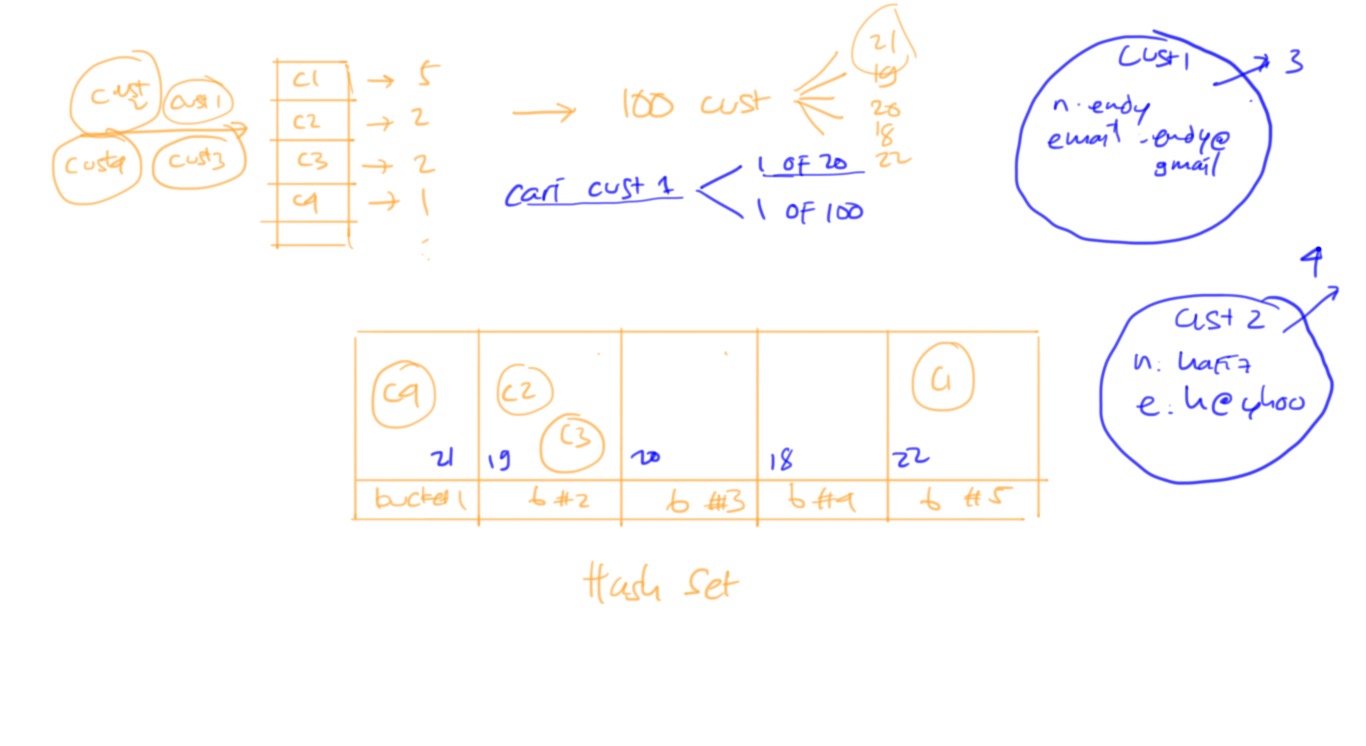 cust 2
cust1
cust4
cust3
C1 → 5
C2 → 2
C3 → 2
C4 → 1
→ 100 cust
21
19
20
18
22
cari cust 1
1 OF 20
1 OF 100
Cust1
3
n. endy
email . endy@
gmail
4
Cust 2
n. hafiz
e. h@yhoo
C4
C2
C3
C1
21 19 20 18 22
bucket 1 b #2 b #3 b #4 b #5
Hash Set